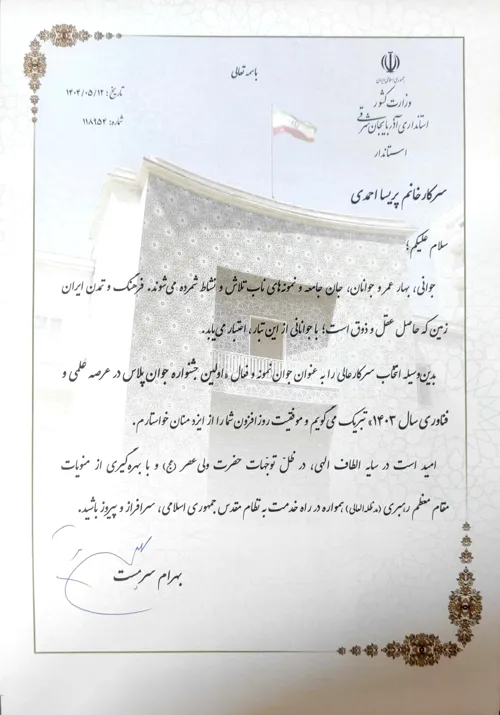 باسمه تعالی
جمهوری اسلامی ایران
وزارت کشور
استانداری آذربایجان شرقی
استاندار
تاریخ: ۱۴۰۴/۰۵/۱۲
شماره: ۱۱۸۹۵۲
سرکار خانم پریسا احمدی
سلام علیکم؛
جوانی، بهار عمر و جوانان، جان جامعه و نمونه‌های ناب تلاش و نشاط شمرده می‌شوند. فرهنگ و تمدن ایران
زمین که حاصل عقل و ذوق است؛ با جوانانی از این تبار، اعتبار می‌یابد.
بدین‌وسیله انتخاب سرکارعالی را به عنوان جوان نمونه و فعال «اولین جشنواره جوان پلاس در عرصه علمی و
فناوری سال ۱۴۰۳» تبریک می‌گویم و موفقیت روزافزون شما را از ایزد منان خواستارم.
امید است در سایه الطاف الهی، در ظلّ توجّهات حضرت ولی‌عصر (عج) و با بهره‌گیری از منویات
مقام معظم رهبری (مدظله‌العالی) همواره در راه خدمت به نظام مقدس جمهوری اسلامی، سرافراز و پیروز باشید.
بهرام سرمست